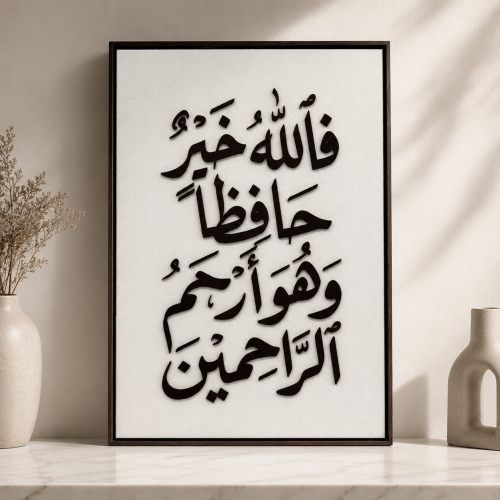 فَٱللَّهُ خَيْرٌ
حَافِظاً
وَهُوَ أَرْحَمُ
ٱلرَّاحِمِيْنَ